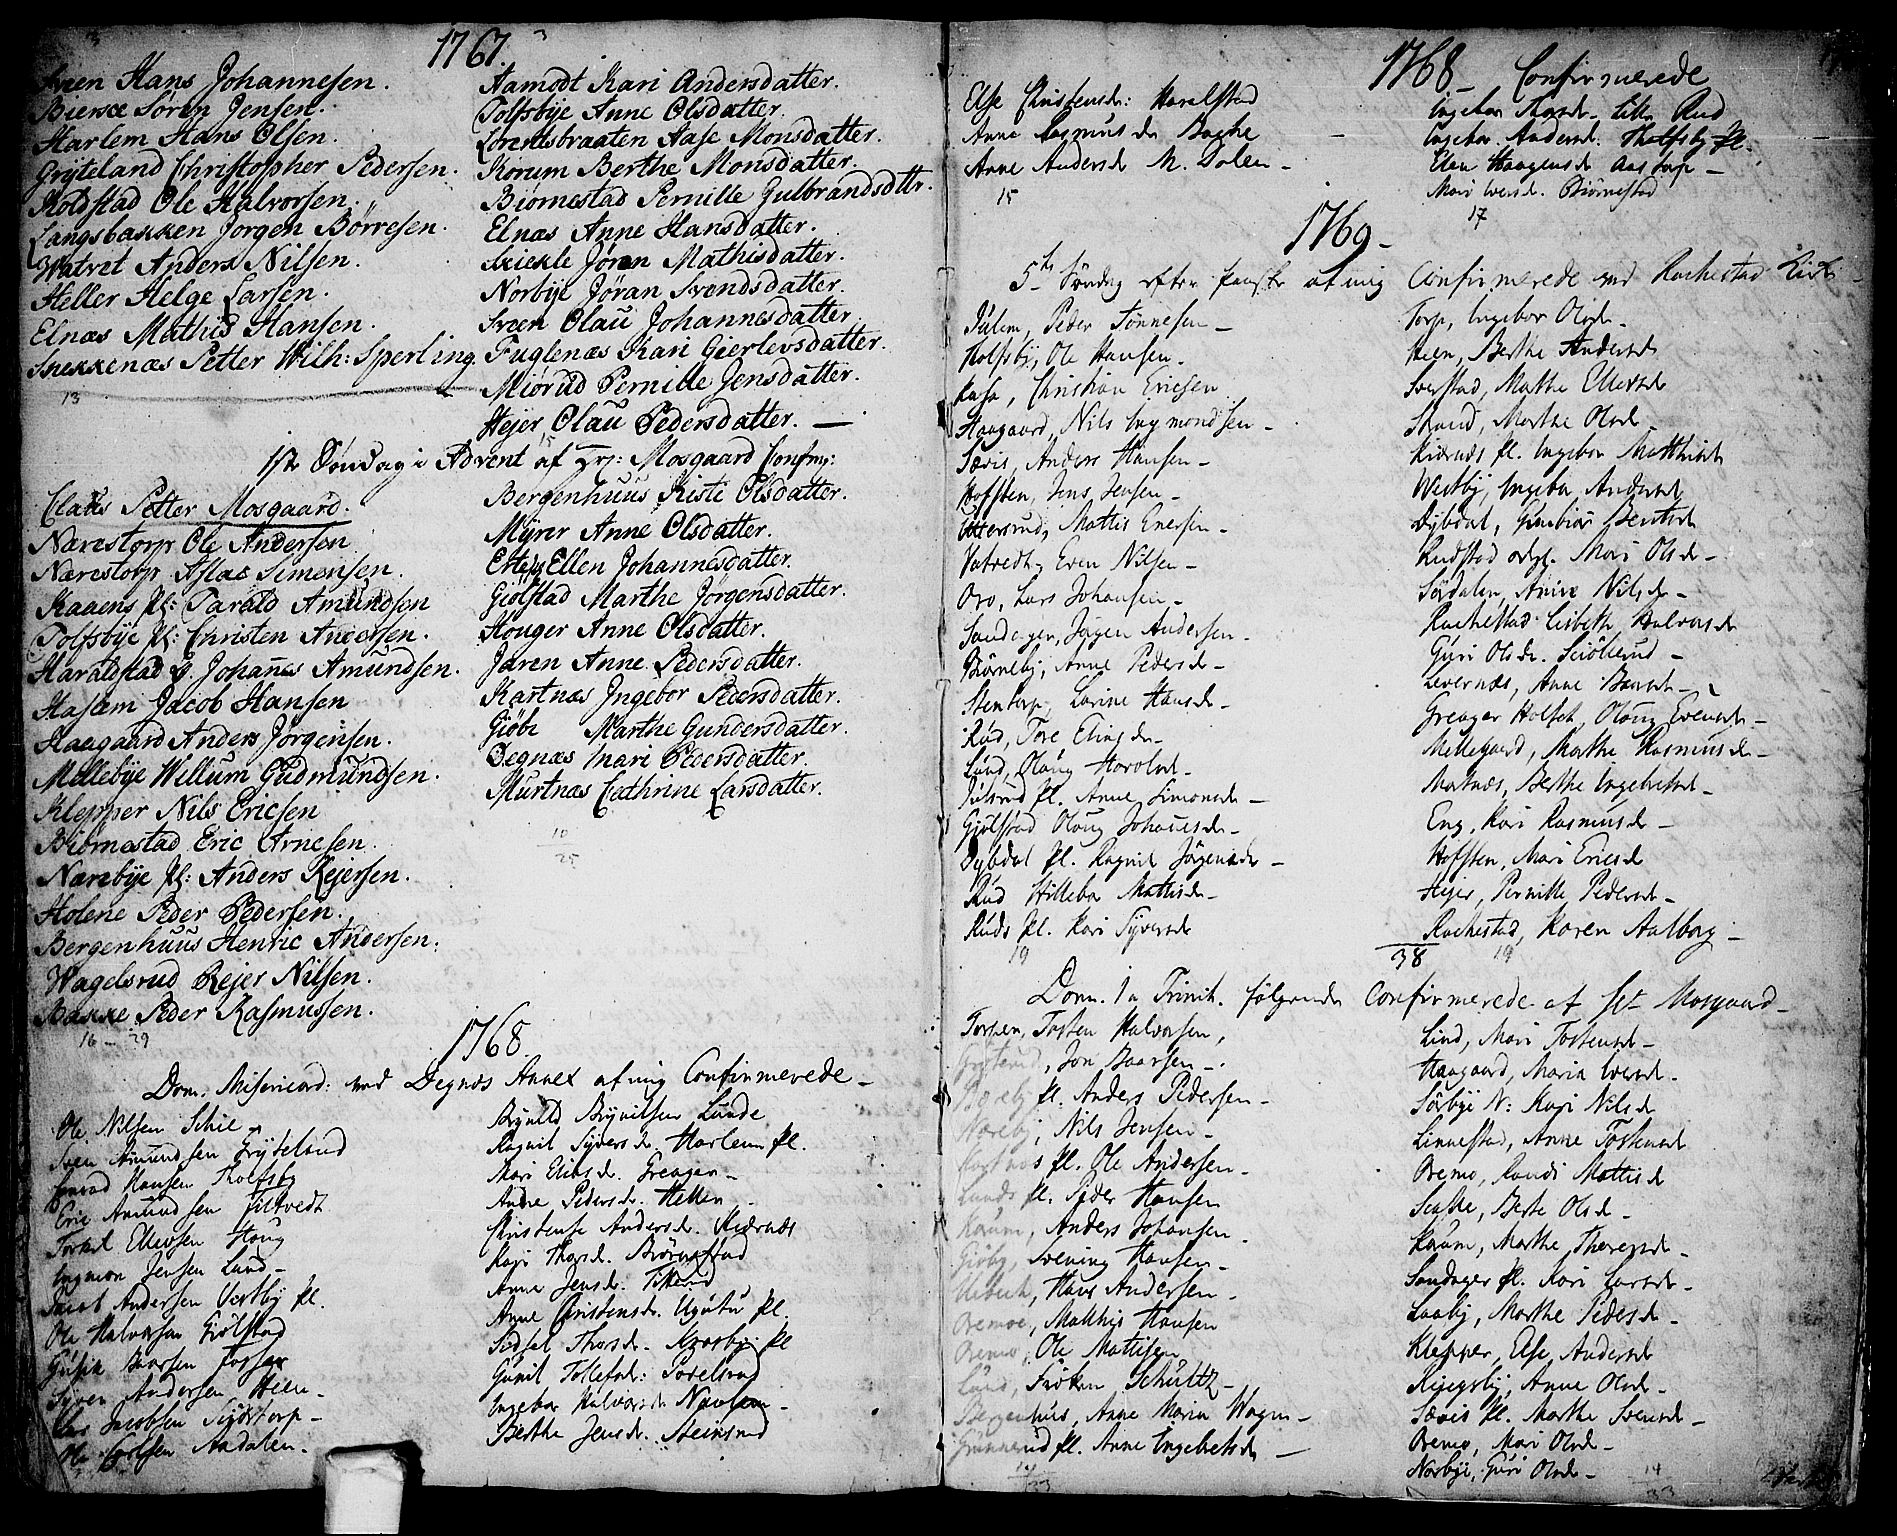 1767.
Sveen Hans Johannesen.
Bierke Sören Jensen.
Harlem Hans Olsen.
Grÿteland Christopher Pedersen.
Koldstad Ole Halvorsen.
Langsbakken Jørgen Börresen.
Watvet Anders Nilsen.
Heller Helge Larsen.
Elnæs Mathis Hansen.
Snekkenæs Petter Wilh: Sperling.
13
Aamodt Kari Andersdatter.
Tolfsbÿe Anne Olsdatter.
Lorentsbraaten Aase Monsdatter.
Korum Berthe Monsdatter.
Biørnestad Pernille Gulbrandsdttr.
Elnæs Anne Hansdatter.
Skiekle Jöran Mathisdatter.
Norbÿe Jöran Svendsdatter.
Sveen Olau Johannesdatter.
Fuglenæs Kari Gierlevsdatter.
Miørud Pernille Jensdatter.
Hejer Olau Pedersdatter. —
15
1ste Söndag i Advent af Hr: Mosgaard Confirm:
Claus Petter Mosgaard.
Nærestorp Ole Andersen
Nærestorp Aslac Simensen.
Kaaens pl: Tarald Amundsen
Tolfsbÿe pl: Christen Andersen.
Haraldstad Johanes Amundsen.
Haslem Jacob Hansen
Haagaard Anders Jörgensen.
Mellebÿe Willum Gudmundsen.
Klepper Nils Ericsen
Biørnestad Eric Arnesen.
Nærebÿe pl: Anders Rejersen.
Holene Peder Pedersen.
Bergenhuus Henric Andersen.
Wagelsrud Rejer Nilsen.
Bakke Peder Rasmussen.
16 — 29
Bergenhuus Kiste Olsdatter.
Mÿrer Anne Olsdatter.
Ellen Johannesdatter.
Giölstad Marthe Jörgensdatter.
Houger Anne Olsdatter.
Jaren Anne Pedersdatter.
Kartnæs Ingebor Pedersdatter.
Giöbÿ Marthe Gundersdatter.
Degnæs Mari Pedersdatter.
Murtnæs Cathrine Larsdatter.
10
25
1768
Dom. Misericord: ved Degnæs Annex af mig Confirmerede —
Ole Nilsen Schie
Sven Amundsen Grÿteland
Hansen Tholfsby
Eric Amundsen Fistvedt
Torkel Ellevsen Houg
Ingmon Jensen Lund —
Jacob Andersen Vestby pl.
Ole Halvorsen Giölstad
Baarsen Fosser
Syver Andersen Heen —
Jacobsen
Aadalen.
Brynild Brynilsen Lunde
Ragnil Syvers d. Harlem pl.
Mari Elias d. Greager —
Anne Peders d. Heller —
Christense Anders d. Kiærnæs
Kari Thors d. Biørnestad
Anne Jens d. Tikerud
Anne Christens d. pl.
Sidsel Thors d. Krosby pl
Gunil Tollefsd: Torelsrud
Ingebor Halvors d. —
Berthe Jens d. Steinsrud
1768 — Confirmerede
Else Christensd: Haralstad
Anne Rasmus d. Bache
Anne Anders d. M. Dalen —
15
Ingebor Lille Rud
Ingebor Andersd. Tholfsby pl.
Elen Haagens d. Aastorp —
Mari Ivers d. Biørnestad
17
1769 —
5te Söndag efter Paaske af mig Confirmerede ved Rachestad Kirk —
Julem, Peder Tønnesen —
Tholfsby, Ole Hansen —
Kasa, Christian Ericsen
Haagaard, Nils Ingmondsen —
Sævis, Anders Hansen —
Hofsten, Jens Jensen —
Ottersrud, Mattis Enersen —
Vatvedt, Even Nilsen —
Oro, Lars Johansen —
Sandager, Jögen Andersen —
Børneby, Anne Peders d —
Stentorp, Karine Hans d. —
Rud, Tore Elings d —
Lund, Oloug Haralsd. —
Julsrud pl. Anne Simons d. —
Gjølstad Oloug Johanes d. —
Dybdal pl. Ragnil Jögens d. —
Rud Hillebor Mattis d. —
Ruds pl. Kari Syvers d
19
Torp, Ingebor Ols d. —
Heen, Berthe Anders d
Sverstad, Marthe Ellevs d
Strand, Marthe Ols d.
Kiærnæs pl. Ingebor Matthis d
Westby, Ingebor Anders d
Dybdal, Gunbior Bents d
Rudstad Mari Ols d —
Sørdalen, Anne Nils d —
Rachestad Lisbeth Halvors d
Guri Ols d. —
Levernæs, Anne —
Greager Holset, Oloug Evens d —
Mellegaard, Marthe Rasmus d —
Mortnæs, Berthe Ingebrets d —
Eng, Kari Rasmus d —
Hofsten, Mari Erics d
Hejer, Pernille Peders d —
Rachestad, Karen Aalborg —
38 19
Dom. 1 a Trinit. følgende Confirmerede af Hr Mosgaard —
Tosten Halvorsen,
Jon Baarsen —
Bæreby pl. Anders Pedersen —
Næreby, Nils Jensen —
pl. Ole Andersen —
Lunds pl. Peder Hansen
Kaum, Anders Johansen —
Giøby, Svening Hansen —
Hans Andersen —
Oremoe, Matthis Hansen
Oremo, Ole Mattisen
Lund, Frøken Schultz —
Bergenhus, Anne Maria Wagn —
pl. Anne Ingebrets d —
Lind, Mari Tostens d —
Haagaard, Maria Ivers d —
Sörbye N: Kari Nils d
Linnestad, Anne Tostens d
Oremo, Randi Mattis d
Berte Ols d. —
Kaum, Marthe —
Sandager pl. Kari Lars d —
Laaby, Marthe Peders d —
Klepper, Else Anders d
Anne Ols d —
Sævis pl. Marthe Svens d —
Oremo, Mari Ols d —
Norbye, Guri Ols d —
14
33